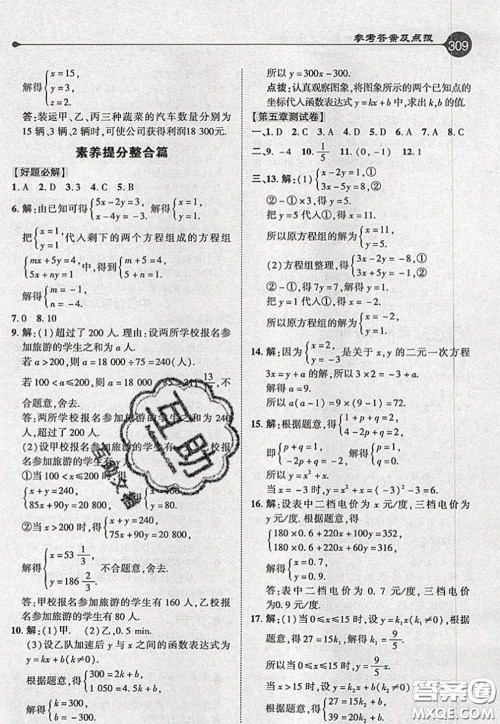 参考答案及点拨 309
解得{x=15,
y=3,
z=2.
答:装运甲、乙、丙三种蔬菜的汽车数量分别为
15 辆,3 辆,2 辆时,可使公司获得利润18 300元.
素养提分整合篇
【好题必解】
1. A 2. D 3. C 4. C 5. B
6. 解:由已知可得{5x-2y=3,
x-4y=-3. 解得{x=1,
y=1.
把{x=1,
y=1 代入剩下的两个方程组成的方程组
{mx+5y=4,
5x+ny=1 中,得{m+5=4,
5+n=1,
解得{m=-1,
n=-4.
7. 0 8. 10
9. 解:(1)超过了 200 人. 理由:设两所学校报名参
加旅游的学生之和为 a 人.
若 a>200,则 a=18 000÷75=240(人).
若 100<a≤200,则 a=18 000÷85=211 13/
不合题意,舍去.
答:两所学校报名参加旅游的学生之和
超过了 200 人.
(2)设甲校报名参加旅游的学生有 x 人,乙校报
名参加旅游的学生有 y 人.
①当 100<x≤200 时,得
{x+y=240,
85x+90y=20 解得{x=160,
y=80.
②当 x>200 时,得{x+y=240,
75x+90y=
解得{x=53 1/3,
y=186 2/3. 不合题意,舍去.
答:甲校报名参加旅游的学生有 160 人,乙校报
名参加旅游的学生有 80 人.
10. 解:(1)甲. (2)乙,0.5 min.
(3)设乙队加速后 y 与 x 之间的函数表达式为
y=kx+b(k≠0).
根据题意,得{300=2k+b,
1 050=4.5k+b,
解得{k=300,
b=-300.
所以 y=300x-300.
点拨:认真观察图象,将图象所示的一个已知点的
坐标代入函数表达式 y=kx+b 中,可求 k,b 的值.
【第五章测试卷】
一、1. D 2. C 3. A 4. C 5. A 6. B 7. D 8. C
二、9. -4 10. 1/5 11. 16 12. 1
三、13. 解:(1){x-2y=1,①
3x-2y=5,②
②-①×3,得 y=
把 y= 代入①,得 x=
所以原方程组的解为{x=11,
y=5.
(2)方程组整理,得{3x-2y=8,①
3x+5y=1,②
②-①,得 7y=7,解得 y=-1.
把 y=-1 代入①,得 x=2.
所以原方程组的解为{x=2,
y=-1.
14. 解:因为{x=3,
y=a 是关于 x,y 的二元一次方程
3x=y+a 的解,所以 3×3=a+a.
解得 a= 所以 a(a-1)=
15. 解:根据题意,得{1+p+q=2,
4-2p+q=2.
即{p+q=1,
-2p+q=-2. 解得{p=1,
q=0.
16. 解:设表中二档电价为 x 元/度,三档电价为
y 元/度. 根据题意,得
{180×0.6+220x+100y=352,
180×0.6+220x+60y=316.
解得{x=0.7,
y=0.9.
答:表中二档电价为 0.7 元/度,三档电价
为0.9 元/度.
17. 解:(1)当 0≤x≤15 时,设 y=k₁x(k₁≠0).
根据题意,得 27=15k₁,解得 k₁=9/5.
所以当 0≤x≤15 时,y=9/5x.
当 x>15 时,设 y=k₂x+b(k₂≠0).
根据题意,得{27=15k₂+b,
互助
互助文化
答案圈
MXQE.COM